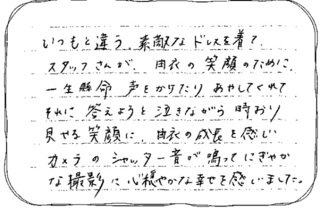 いつもと違う、素敵なドレスを着て、
スタッフさんが、由衣の笑顔のために、
一生懸命 声をかけたり あやしてくれて
それに 答えようと 泣きながら 時おり
見せる笑顔に、由衣の成長を感じ
カメラの シャッター音が 鳴って にぎやか
な撮影に 心穏やかな幸せを感いました。